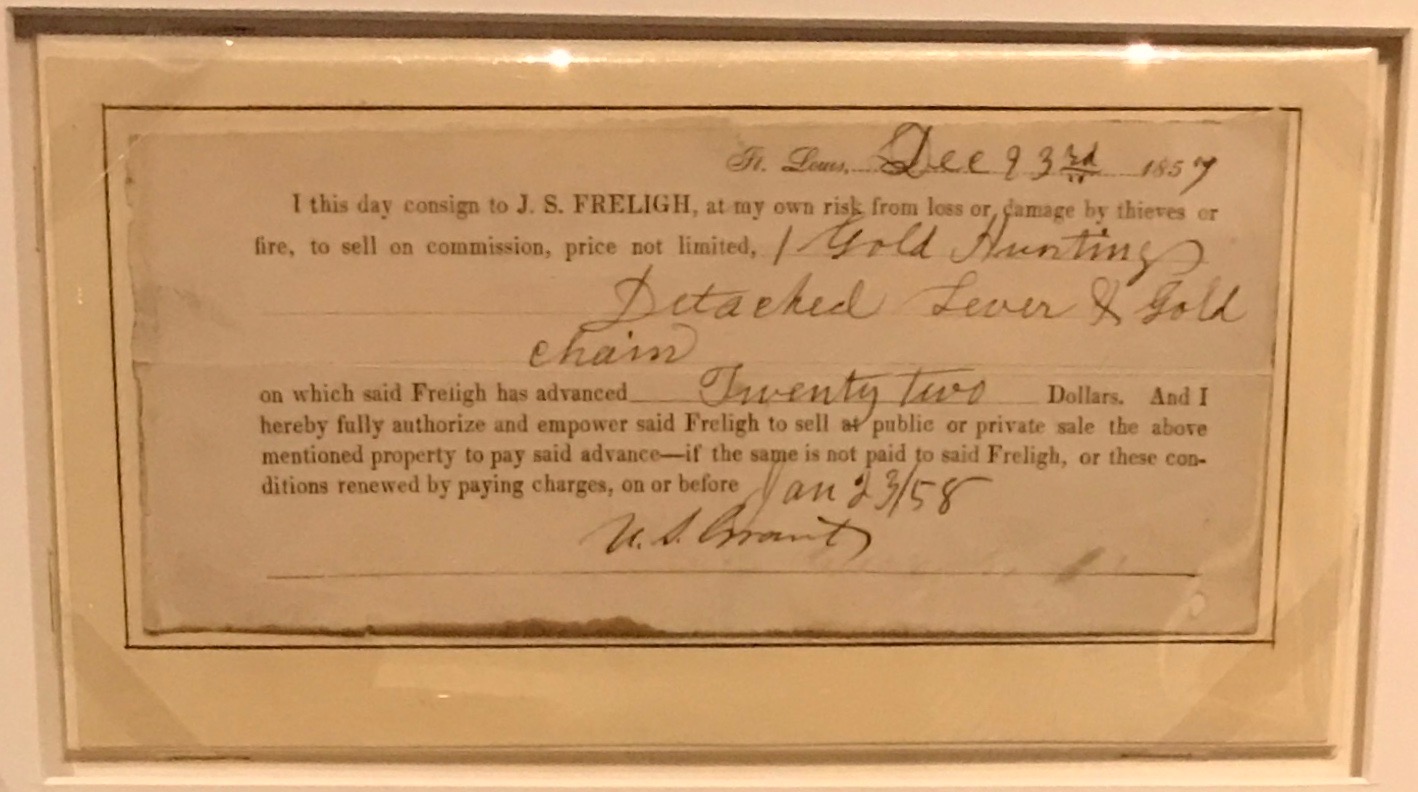 St. Louis, Dec 23rd 1857
I this day consign to J. S. FRELIGH, at my own risk from loss or damage by thieves or
fire, to sell on commission, price not limited, 1 Gold Hunting
Detached Lever & Gold
chain
on which said Freligh has advanced Twenty two Dollars. And I
hereby fully authorize and empower said Freligh to sell at public or private sale the above
mentioned property to pay said advance—if the same is not paid to said Freligh, or these con-
ditions renewed by paying charges, on or before Jan 23/58
U. S. Grant